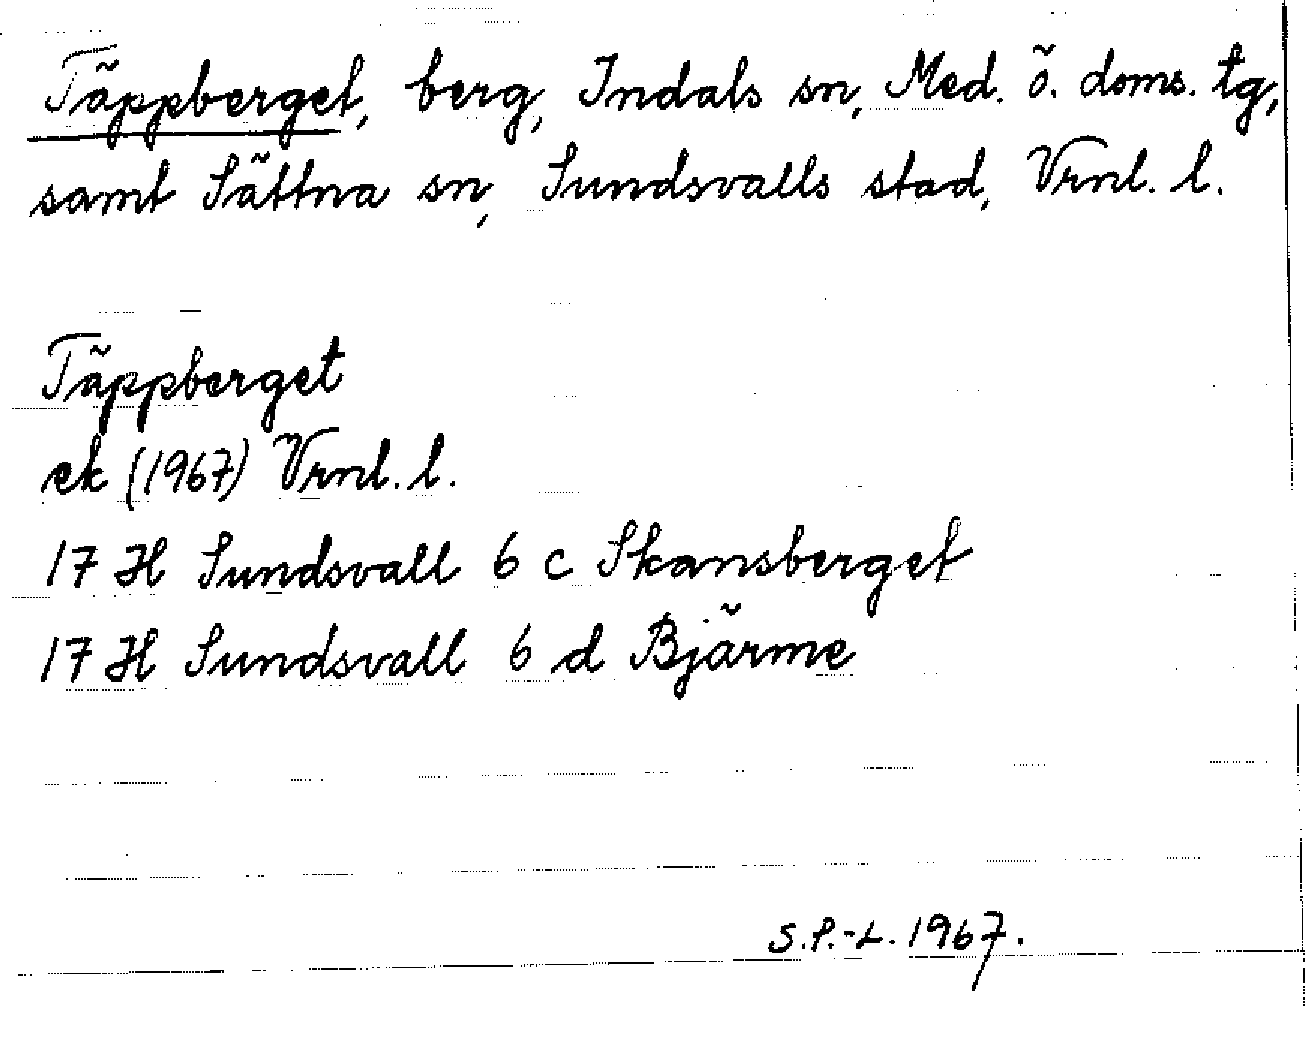 Täppberget, berg, Indals sn, Med. ö. doms. tg,
samt Sättna sn, Sundsvalls stad, Vrnl. l.
Täppberget
ek (1967) Vrnl. l.
17 H Sundsvall 6 c Skansberget
17 H Sundsvall 6 d Bjärme
S.P.-L. 1967.